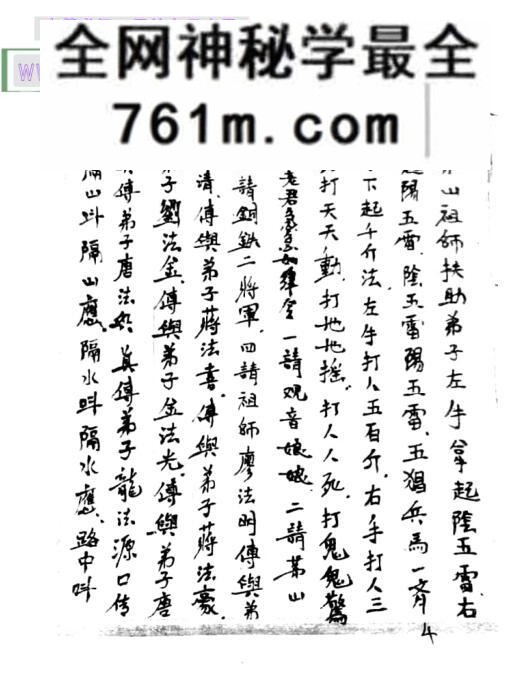 WW
全网神秘学最全
761m.com
山祖師扶助弟子左手拿起陰五雷、右
起陽五雷、陰五雷陽五雷、五猖兵馬一齊
下起千斤法、左手打人五百斤、右手打人三
打天天動、打地地搖、打人人死、打鬼鬼驚
老君急急如律令 一請观音娘娘 二請茅山
請銅鉄二將軍、四請祖師廖法明傳與弟
清、傳與弟子蔣法喜、傳與弟子蔣法豪、
子劉法金、傳與弟子金法光、傳與弟子唐
傳弟子唐法 真傳弟子龍法源口传
隔山叫隔山應、隔水叫隔水應、路中叫
4